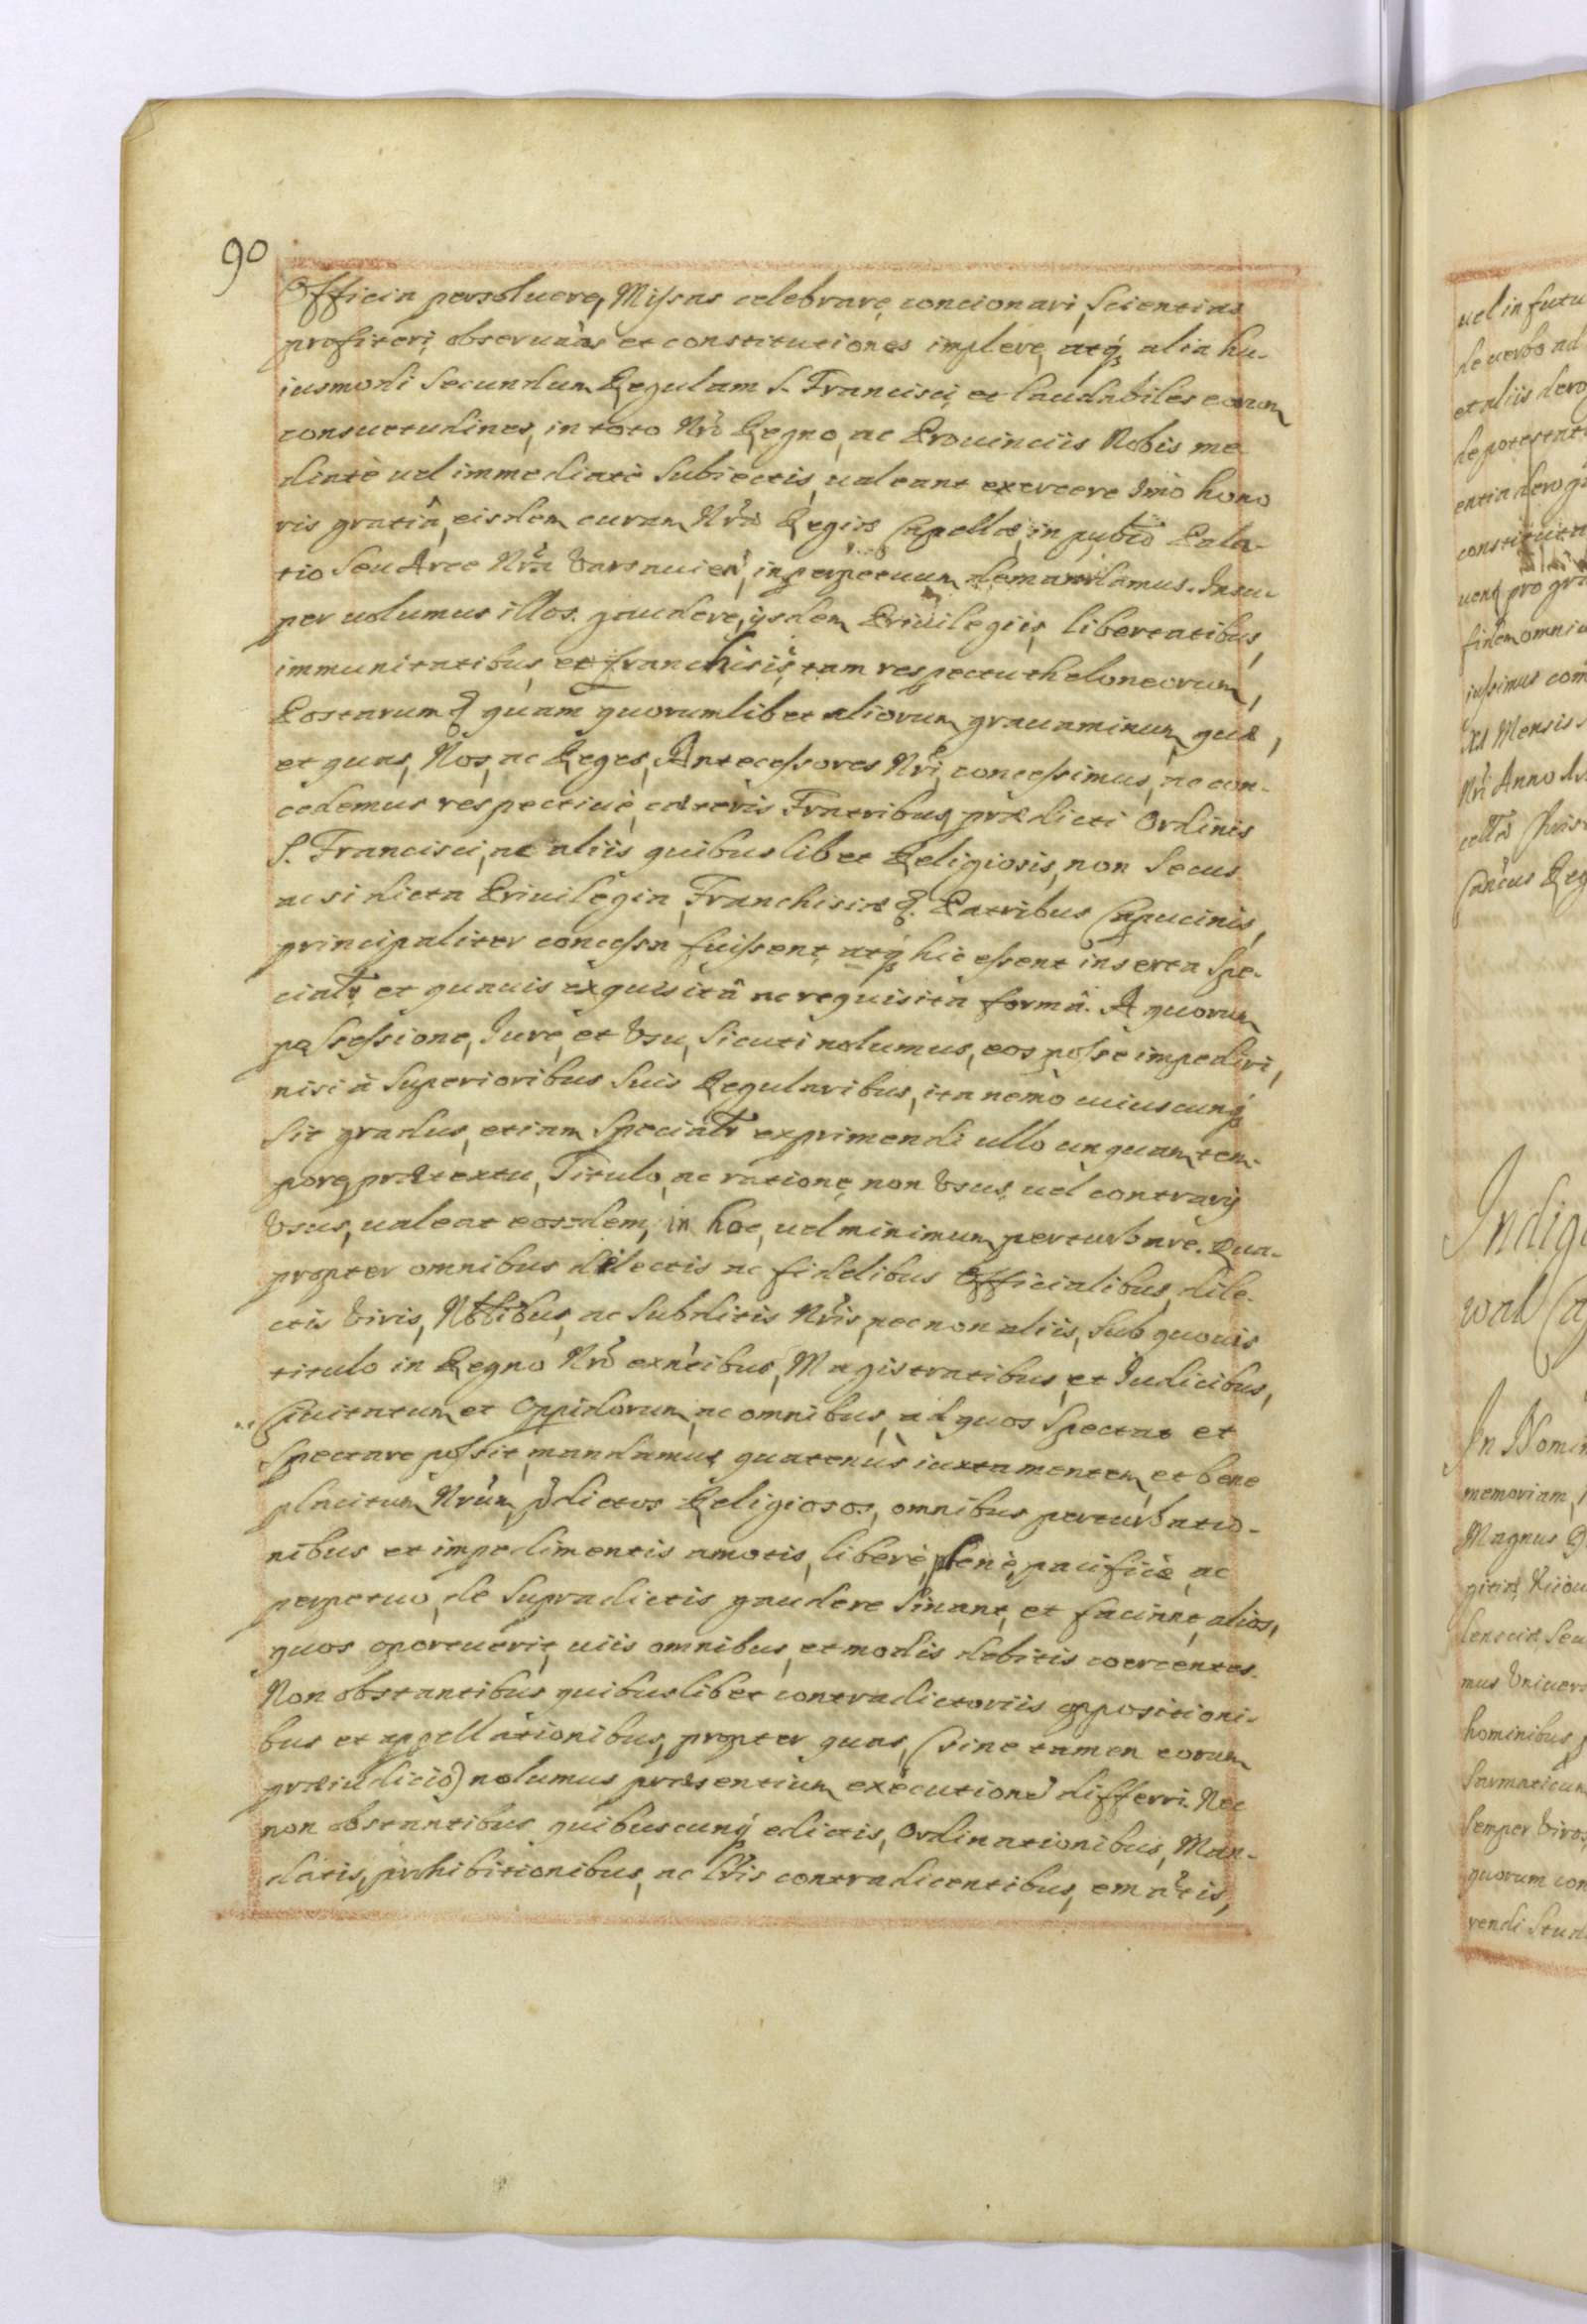 90
Officia persoluere, Missas celebrare, concionari, Scientias
profiteri, obseruãas et constitutiones implere, atq́, alia hu-
iusmodi Secundum Regulam S. Francisci, et laudabiles eorum
consuetudines, in toto Nrõ Regno, ac Prouinciis Nobis me
diatè uel immediatè Subiectis, ualeant exercere Imò hono
ris gratiâ, eisdem curam Nrã Regiæ Capellæ, in publõ Pala-
tio Seu Arce Nrã Varsauien̄, in perpetuum demandamus. Insu-
per uolumus illos. gaudere, ijsdem Priuilegiis, libertatibus,
immunitatibus, et franchisiis, tam respectu theloneorum,
Postarum q́ quam quorumlibet aliorum grauaminum, quæ,
et quas, Nos, ac Reges, Antecessores Nrĩ, concessimus, ac con-
cedemus respectiuè, cæteris Fratribus, prædicti Ordinis
S. Francisci, ac aliis quibuslibet Religiosis, non Secus
ac si dicta Priuilegia, Franchisiæ q́. Patribus Capucinis,
principaliter concessa fuissent, atq́ hic essent inserta Spe-
cialr̃ et quauis exquisitâ ac requisita formâ. A quorum
possessione, Iure, et Vsu, Sicuti nolumus, eos posse impediri,
nisi à Superioribus Suis Regularibus, ita nemò cuiuscunq́
Sit gradus, etiam Specialr̃ exprimendi ullo unquam, tem-
pore, prætextu, Titulo, ac ratione, non Vsus, uel contrarij
Vsus, ualeat eosdem, in hoc, uel minimum, perturbare. Qua-
propter omnibus dilectis ac fidelibus Officialibus, dile-
ctis Viris, Nobilibus, ac Subditis Nrĩs, nec non aliis, Sub quouis
titulo in Regno Nrõ exñtibus, Magistratibus, et Iudicibus,
Ciuitatum, et Oppidorum, ac omnibus, ad quos Spectat et
Spectare possit, mandamus, quatenùs iuxta mentem, et bene
placitum Nrũm, p̃dictos Religiosos, omnibus perturbatio-
nibus et impedimentis amotis, liberè, plenè, pacificè, ac
perpetuo, de Supradictis gaudere Sinant, et faciant, alios,
quos oportuerit, uiis omnibus, et modis debitis coercentes.
Non obstantibus quibuslibet contradictoriis oppositioni-
bus et appellationibus, propter quas, (sine tamen eorum
præiudicio) nolumus præsentium executionẽ differri. Nec
non obstantibus quibuscunq́ edictis, Ordinationibus, Man-
datis, prohibitionibus, ac Lrĩs contradicentibus, emãtis,
uel in futu
de uerbo ad
et aliis dero
de potestat
entia derog
constituta
uent pro gr
fidem omniu
iussimus com
XI Mensis
Nrĩ Anno
Chris
Reg
Indige
wal Ca
In Nomin
memoriam,
Magnus
mus Vniuers
hominibus,
Sarmaticum
Semper Viros,
quorum con
rendi Stud